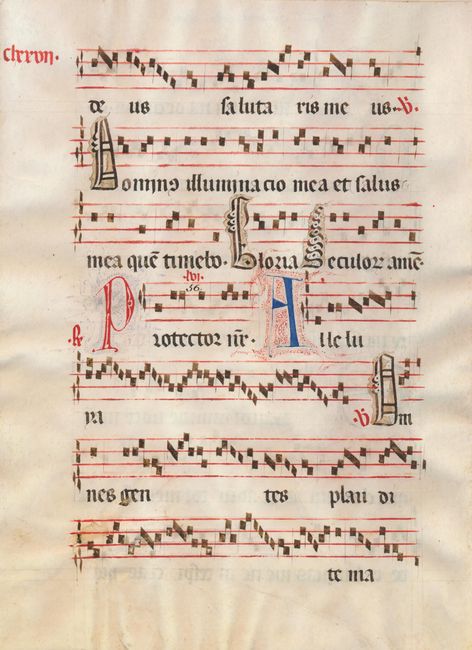 clxxvii.
de us saluta ris me us. ℣.
Domin⁹ illuminacio mea et salus
mea quē timebo. Gloria Seculoꝝ amē.
.lvi.
56.
℟ Protector nr̄. Alle lu
ya ℣. Om
nes gen tes plau di
te ma